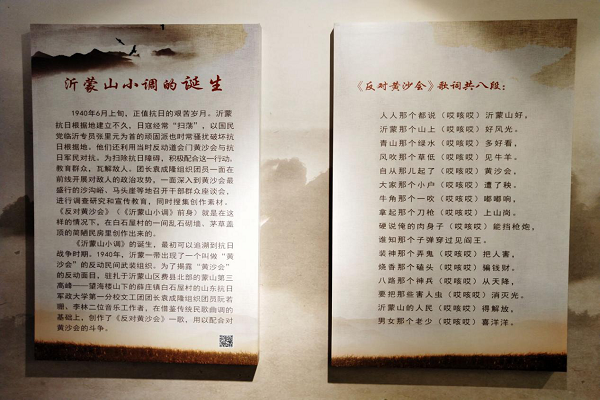 沂蒙山小调的诞生
1940年6月上旬，正值抗日的艰苦岁月。沂蒙
抗日根据地建立不久，日寇经常“扫荡”，以国民
党临沂专员张里元为首的顽固派也时常骚扰破坏抗
日根据地。他们还利用当时反动道会门黄沙会与抗
日军民对抗。为扫除抗日障碍，积极配合这一行动，
教育群众，瓦解敌人。团长袁成隆组织团员一面在
前线开展对敌人的政治攻势，一面深入到黄沙会最
盛行的沙沟峪、马头崖等地召开干部群众座谈会，
进行调查研究和宣传教育，同时搜集创作素材。
《反对黄沙会》（《沂蒙山小调》前身）就是在这
样的情况下，在白石屋村的一间乱石砌墙、茅草盖
顶的简陋民房里创作出来的。
《沂蒙山小调》的诞生，最初可以追溯到抗日
战争时期。1940年，沂蒙一带出现了一个叫做“黄
沙会”的反动民间武装组织。为了揭露“黄沙会”
的反动面目，驻扎于沂蒙山区费县北部的蒙山第三
高峰——望海楼山下的薛庄镇白石屋村的山东抗日
军政大学第一分校文工团团长袁成隆组织团员阮若
珊、李林二位音乐工作者，在借鉴传统民歌曲调的
基础上，创作了《反对黄沙会》一歌，用以配合对
黄沙会的斗争。
《反对黄沙会》歌词共八段：
人人那个都说（哎咳哎）沂蒙山好，
沂蒙那个山上（哎咳哎）好风光。
青山那个绿水（哎咳哎）多好看，
风吹那个草低（哎咳哎）见牛羊。
自从那儿起了（哎咳哎）黄沙会，
大家那个小户（哎咳哎）遭了秧。
牛角那个一吹（哎咳哎）嘟嘟响，
拿起那个刀枪（哎咳哎）上山岗。
硬说俺的肉身子（哎咳哎）能挡枪炮，
谁知那个子弹穿过见阎王。
装神那个弄鬼（哎咳哎）把人害，
烧香那个磕头（哎咳哎）骗钱财。
八路那个神兵（哎咳哎）从天降，
要把那些害人虫（哎咳哎）消灭光。
沂蒙山的人民（哎咳哎）得解放，
男女那个老少（哎咳哎）喜洋洋。